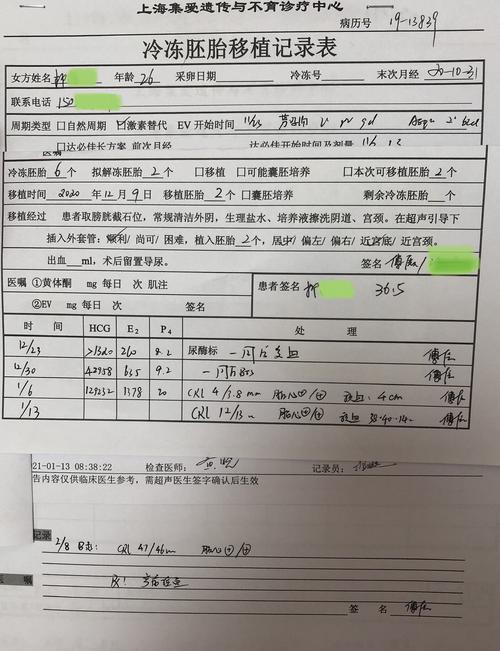 上海集爱遗传与不育诊疗中心
病历号 19-13839
冷冻胚胎移植记录表
女方姓名 年龄 26 采卵日期 冷冻号 末次月经 20-10-31
联系电话 150
周期类型 □自然周期 ☑激素替代 EV开始时间 11/3
□达必佳长方案 前次月经 达必佳开始时间及剂量
医嘱
冷冻胚胎 6 个 拟解冻胚胎 2 个 □移植 □可能囊胚培养 □本次可移植胚胎 2 个
移植时间 2020 年 12 月 9 日 移植胚胎 2 个 □囊胚培养 剩余冷冻胚胎 个
移植经过 患者取膀胱截石位,常规清洁外阴,生理盐水、培养液擦洗阴道、宫颈。在超声引导下
插入外套管:顺利/尚可/困难,植入胚胎 2 个,居中/偏左/偏右/近宫底/近宫颈。
出血 ml,术后留置导尿。 签名
医嘱 ①黄体酮 mg 每日 次 肌注 患者签名 36.5
②EV mg 每日 次 签名
时间 HCG E₂ P₄ 处理
12/23 >1320 260 8.2 尿酶标 一周后
12/30 42958 635 9.2 一周后
1/6 129232 1378 20 CRL 4/3.8mm 胎心⊕/⊕ 4cm
1/13 CRL 12/13m 胎心⊕/⊕
21-01-13 08:38:22 检查医师: 记录员:
告内容仅供临床医生参考,需超声医生签字确认后生效
记录
2/8 B超: CRL 47/46m 胎心⊕/⊕
医嘱
签 名